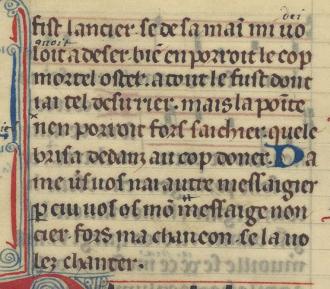 dei
fist lancier. se de sa mai mi uo
quoit
loit adeser. biē en porroit le cop
mortel oster. a tout le fust dont
iai tel desirrier. mais la poīte
nen porroit fors saichier. quele
brisa dedanz au cop doner. Da
me u's uos nai autre messaigier
p cui uos os mō messaige non
cier. fors ma chancon. se la uo
lez chanter.